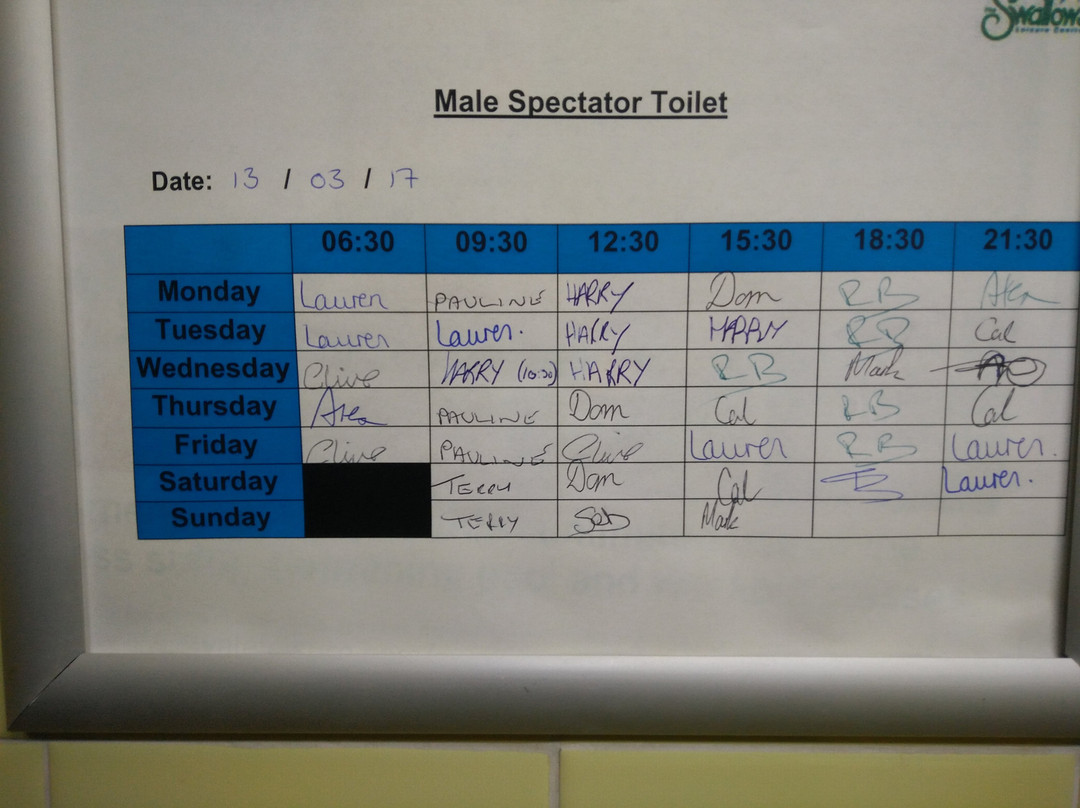 The Swallow
Leisure Centre
Male Spectator Toilet
Date: 13 / 03 / 17
06:30 09:30 12:30 15:30 18:30 21:30
Monday Lauren PAULINE HARRY Dom RB
Tuesday Lauren Lauren. HARRY HARRY RB Cal
Wednesday Clive HARRY (10:30) HARRY RB Mark
Thursday PAULINE Dom Cal RB Cal
Friday Clive PAULINE Clive Lauren RB Lauren.
Saturday TERRY Dom Cal Lauren.
Sunday TERRY Seb Mark